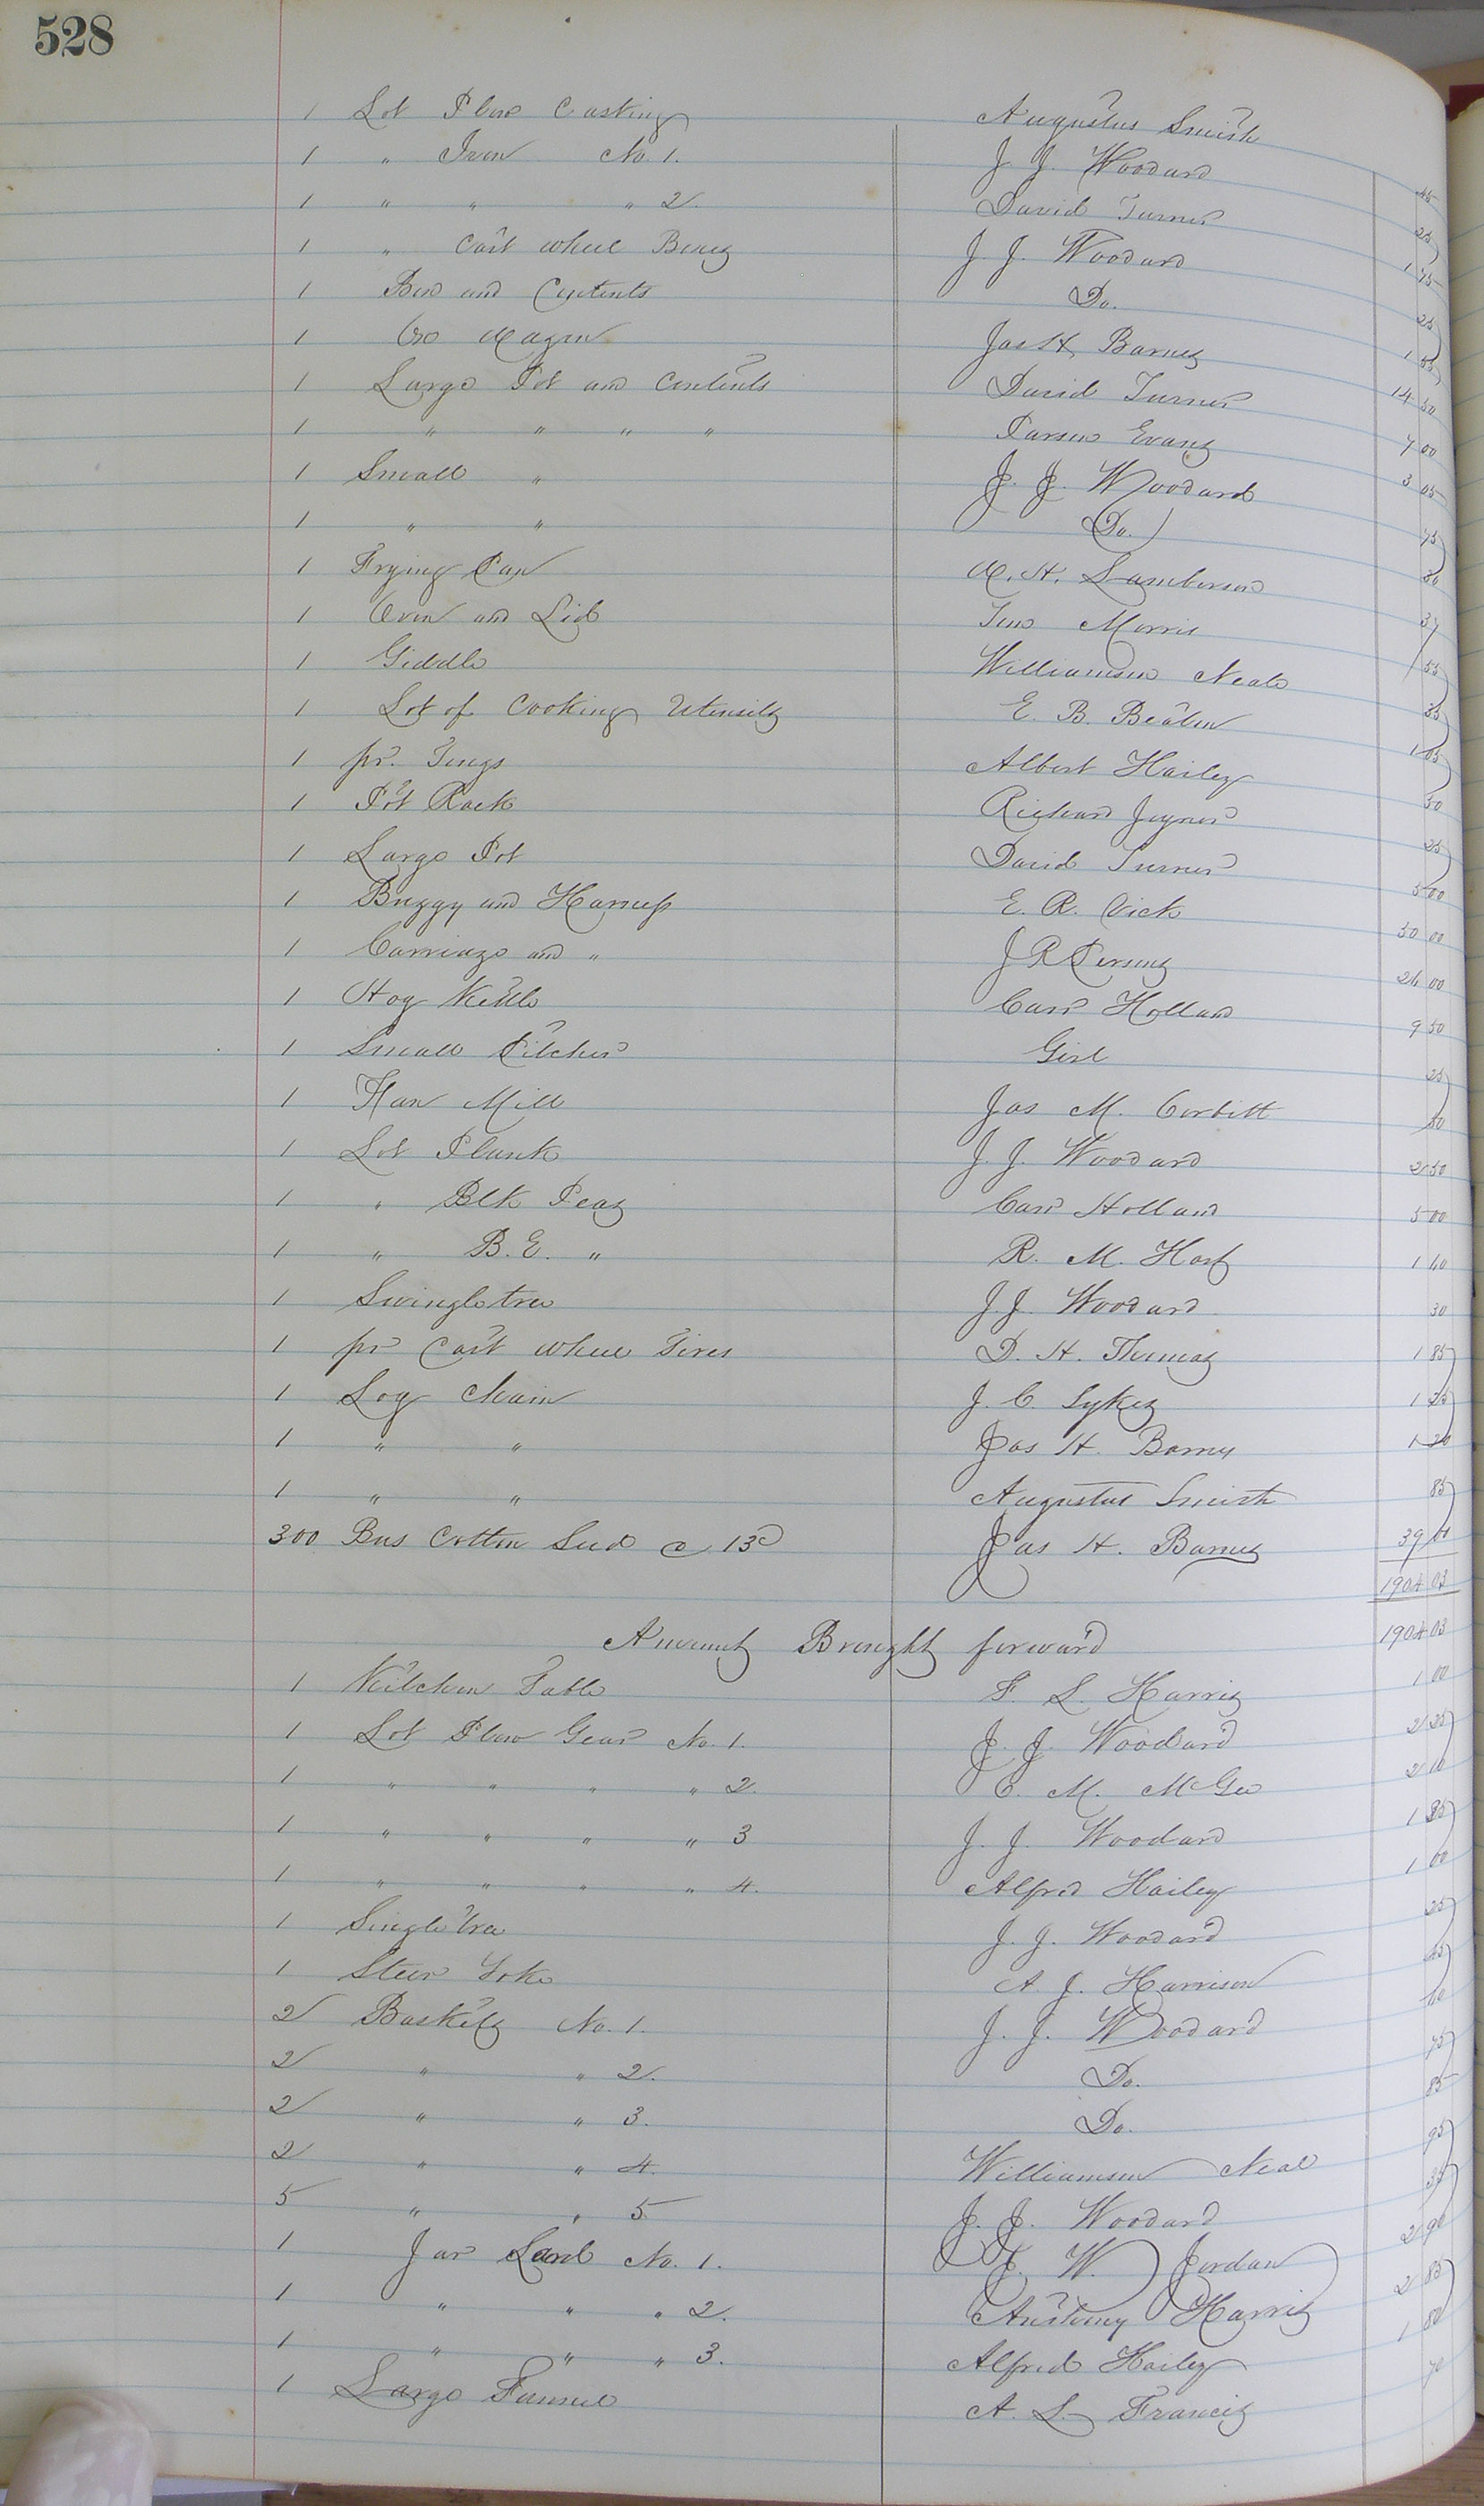 528
1 Lot Plow Casting Augustus Smith 45
1 " Iron No. 1. J. J. Woodard 25
1 " " " 2. David Turner 1 75
1 " Cart wheel Boxes J. J. Woodard 25
1 Box and Contents Do. 1 55
1 Ox Wagon Jas H. Barnes 14 50
1 Large Pot and Contents David Turner 7 00
1 " " " " Parson Evans 3 05
1 Small " J. J. Woodard 75
1 " " Do. 80
1 Frying Pan W. H. Lamberson 37
1 Oven and Lid Jno Morris 55
1 Giddle Williamson Neale 35
1 Lot of Cooking Utensils E. B. Beaton 1 05
1 pr. Tongs Albert Hailey 50
1 Pot Rack Richard Joyner 25
1 Large Pot David Turner 5 00
1 Buggy and Harness E. R. Vick 50 00
1 Carriage and " J R Persons 26 00
1 Hog Kettle Carr Holland 9 50
1 Small Pitcher Girl 25
1 Fan Mill Jas M. Corbitt 50
1 Lot Plank J. J. Woodard 2 50
1 " Blk Peas Carr Holland 5 00
1 " B. E. " R. M. Hart 1 40
1 Swingletree J. J. Woodard 30
1 pr Cart wheel Tires D. H. Thomas 1 85
1 Log Chain J. C. Sykes 1 25
1 " " Jas H. Barnes 1 20
1 " " Augustus Smith 85
300 Bus Cotton Seed @ 13c Jas H. Barnes 39 00
1904 03
Amount Brought forward 1904 03
1 Kitchen Table F. L. Harris 1 00
1 Lot Plow Gear No. 1. J. J. Woodard 2 25
1 " " " " 2. C. M. McGee 2 10
1 " " " " 3 J. J. Woodard 1 85
1 " " " " 4. Alfred Hailey 1 00
1 Singletree J. J. Woodard 25
1 Steer Yoke A. J. Harrison 45
2 Baskets No. 1. J. J. Woodard 60
2 " " 2. Do. 75
2 " " 3. Do. 85
2 " " 4. Williamson Neal 95
5 " " 5 J. J. Woodard 35
1 Jar Lard No. 1. J. W. Jordan 2 90
1 " " " 2. Anthony Harris 2 85
1 " " " 3. Alfred Hailey 1 80
1 Large Funnel A. L. Francis 70